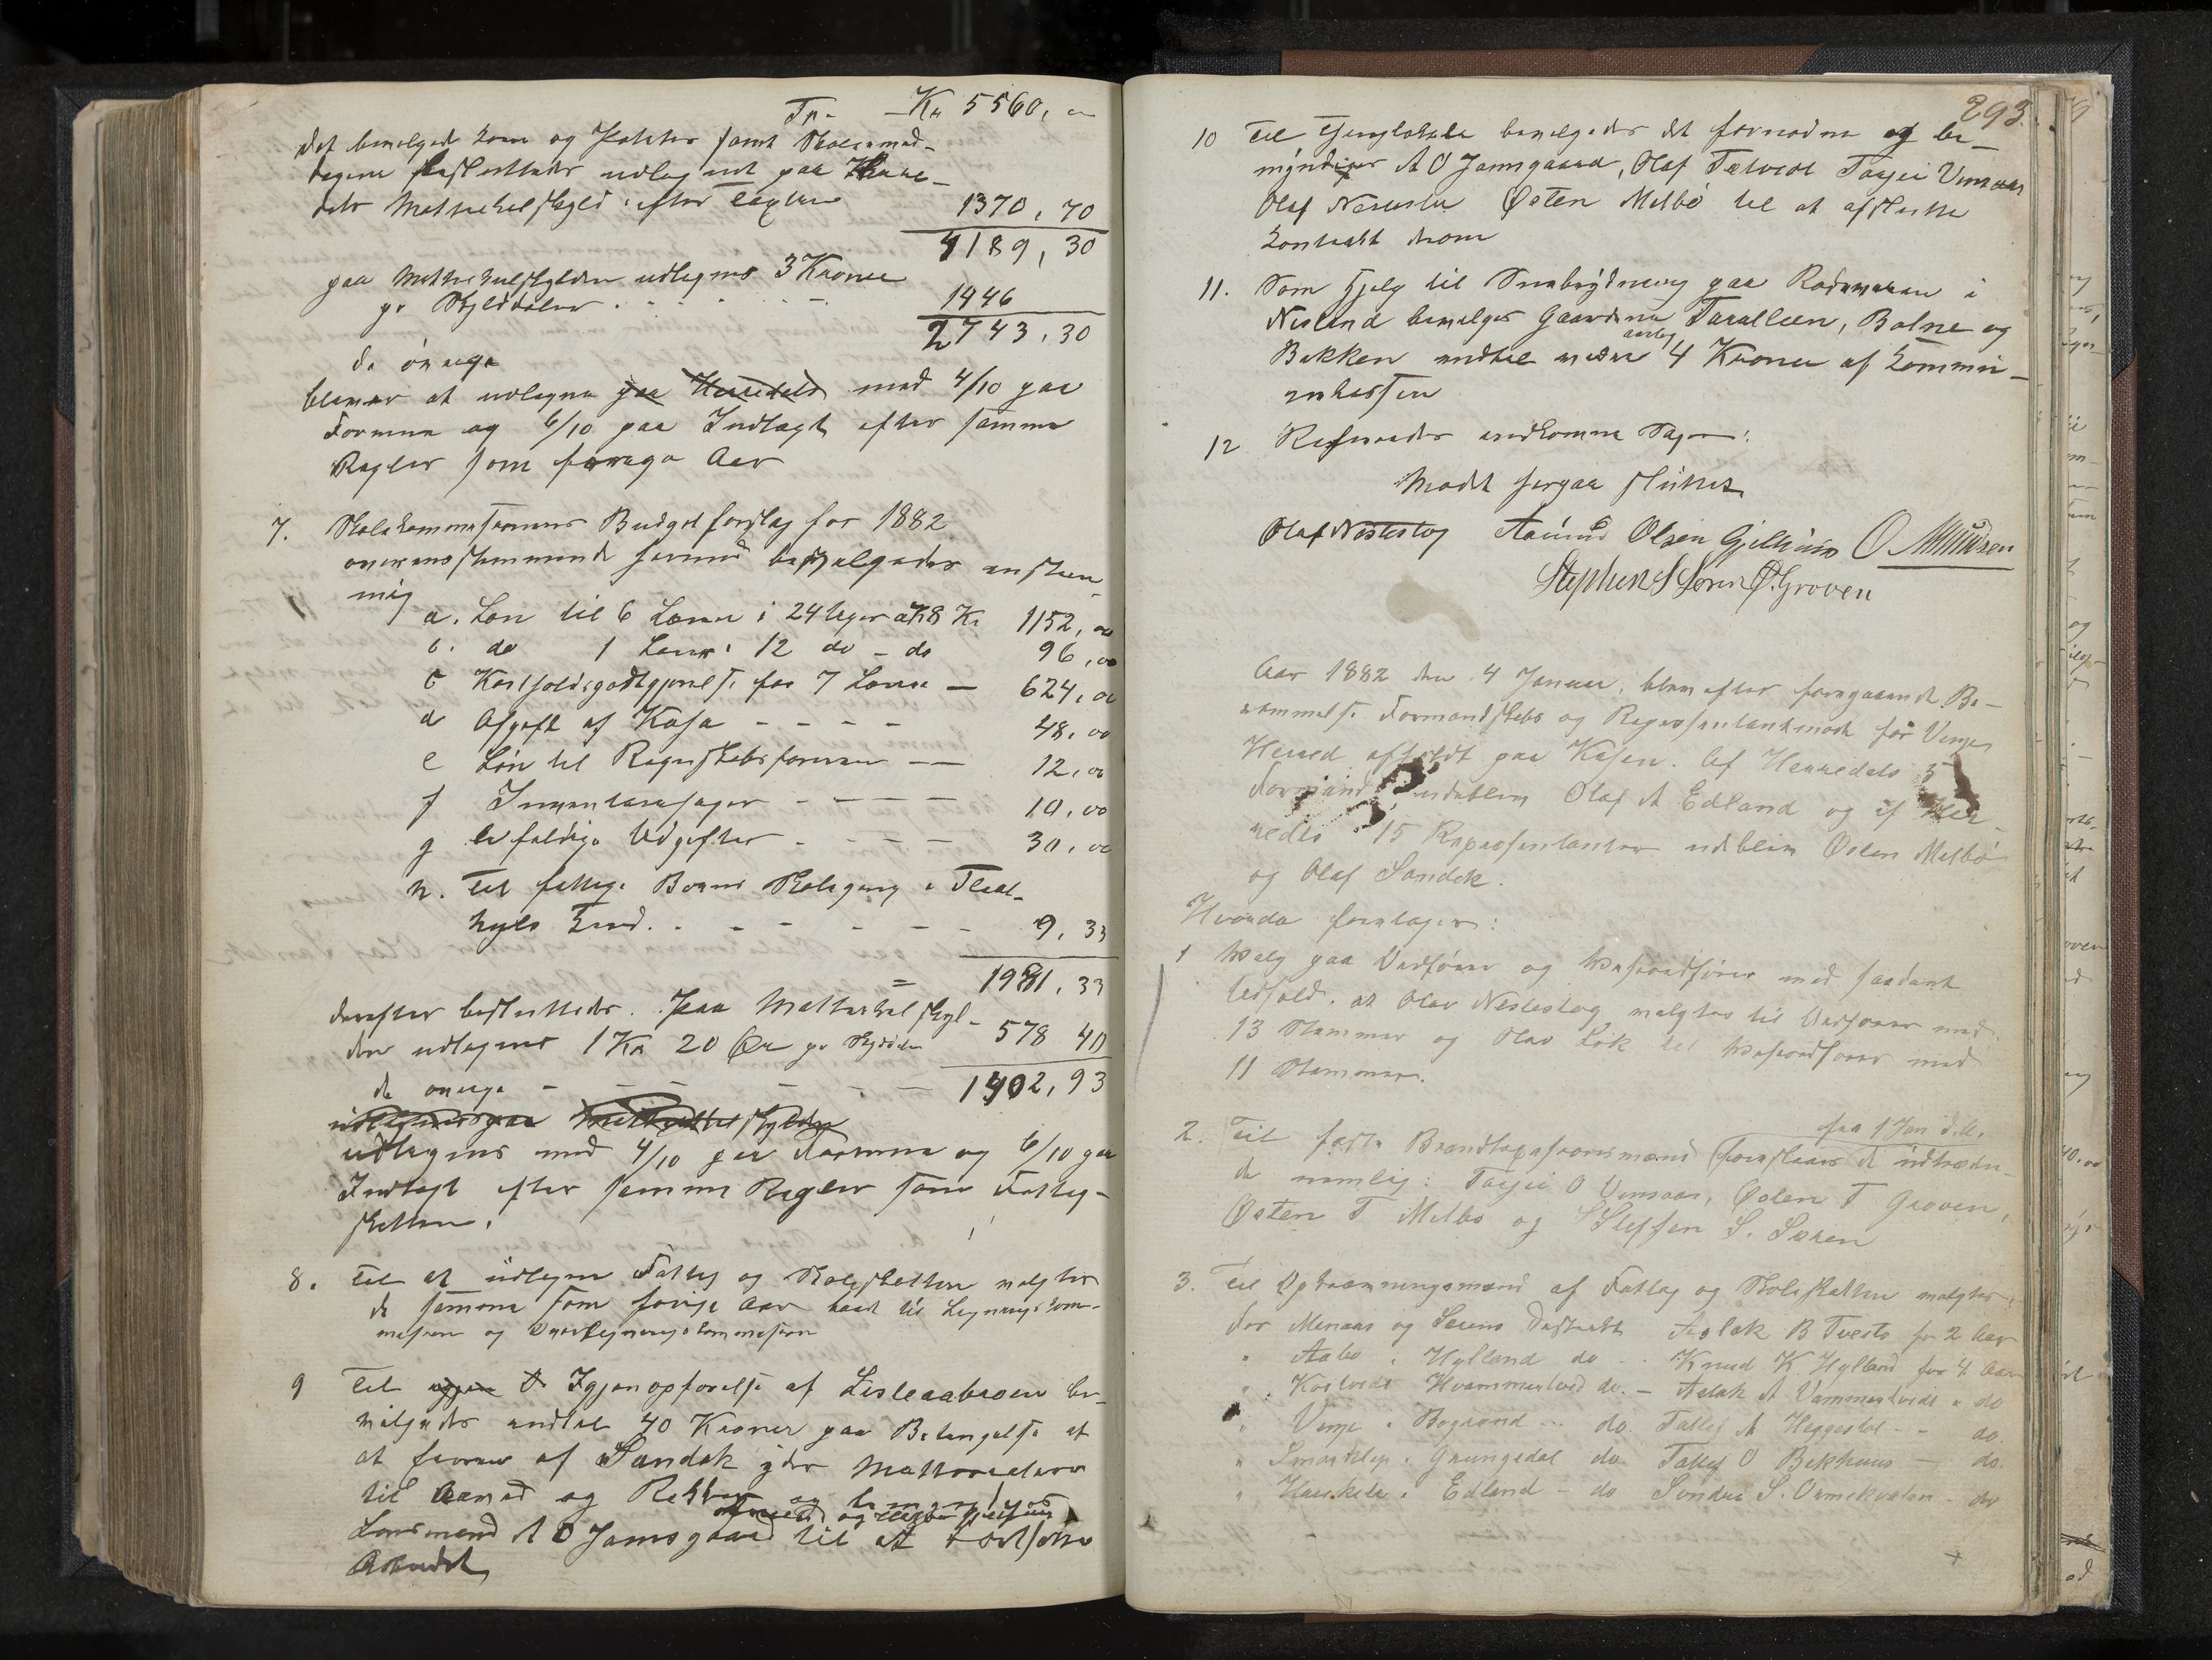 Tr. - Kr 5560, "
det bevilgede Korn og Poteter samt Skolemed-
besluttedes udlignet paa Herre-
dets Matrikelskyld efter
1370, 70
4189, 30
paa Matrikulskylden udlignes 3 Kroner
pr Skylddaler . - - - - 1446
2743, 30
de øvrige
blever at udligne paa Herredets med 4/10 paa
Formue og 6/10 paa Indtægt efter samme
Regler som forrige Aar
7. Skolekommissionens Budgetforslag for 1882
overensstemmende hermed bevilgedes enstem-
mig
a. Løn til 6 Lærere i 24 Uger a 8 Kr 1152, 00
b. do 1 Lærer i 12 do - do 96, 00
c Kostholdsgodtgjørelse for 7 Lærere — 624, 00
d Afgift af Kasa - - - - 48, 00
e Løn til Regnskabsføreren — 12, 00
f Inventariesager - - - - 10, 00
g tilfældige Udgifter - - - - 30, 00
h. Til fattige Børns Skolegang i Fladt-
hyls Fond. . - - - - - 9, 33
= 1981, 33
derefter besluttedes. Paa Matrikelskyl-
den udlignes 1 Kr 20 Øre pr Skyldd 578 40
de øvrige - - - - - 1402, 93
udlignes paa Matrikulskylden
udlignes med 4/10 paa Formue og 6/10 paa
Indtægt efter samme Regler som Fattig-
skatten.
8. Til at udligne Fattig og Skoleskatten valgtes
de samme som forrige Aar baade til Ligningskom-
mission og Overligningskommission
9 Til Igjenopførelse af Lisleaabroen be-
vilgedes indtil 40 Kroner paa Betingelse at
at Eieren af Sandok yder Materialier
til Aamod og Rekkver og bemyndiges
Lensmand A O Jamsgaard til at iværksætte
Arbeidet
293.
10 Til Tinglokale bevilgedes det fornødne og be-
myndiges A O Jamsgaard, Olaf Tætveit Tarjei Vinsaas
Olaf Neslestø Østen Melbø til at afslutte
Kontrakt derom
11. Som Hjelp til Snebrydning paa Rodevveien i
Nesland bevilges Gaardene Tarallien, Botne og
aarlig
Bakken indtil videre 4 Kroner af Kommu-
nekassen
12 Refereredes indkomne Sager.
Mødet herpaa sluttet
Olaf Neslestog Aamund Olsen Gjelhuus O. Mundsen
Stephen S Søren Ø. Groven
Aar 1882 den 4 Januar, blev efter foregaaende Be-
rammelse Formandskabs og Repræsentantmøde for Vinje
Herred afholdt paa Kasen. Af Herredets 5
Formænd udeblev Olaf A Edland og af Her-
redets 15 Repræsentanter udeblev Østen Melbø
og Olaf Sandok.
Hvorda foretoges:
1 Valg paa Ordfører og Viseordfører med saadant
Udfald, at Olav Neslestog valgtes til Ordfører med
13 Stemmer og Olav Løk til Viseordfører med
11 Stemmer.
fra 1 Jan d.A.
2. Til faste Brandtaxationsmænd foreslaaes de udtræden-
de nemlig: Tarjei O Vinsaas, Østen T Groven,
Østen T Melbø og Steffen S. Søren
3. Til Opkrævningsmænd af Fattig og Skoleskatten valgtes,
For Menaas og Særens Distrikt Aslak B Tveito for 2 Aar
" Aabø . Hylland do - . Knud K Hylland for 4 Aar
" . Kostveit Hvammestveid do. - Aslak A Vammestveit " do
" Vinje . Bøgrend - - do Tallef A Heggestøl - - do.
" Smørklep . Grungedal do Tallef O Bekhuus — do.
" Haukeli . Edland - do Sondre S. Ormekvalen - do